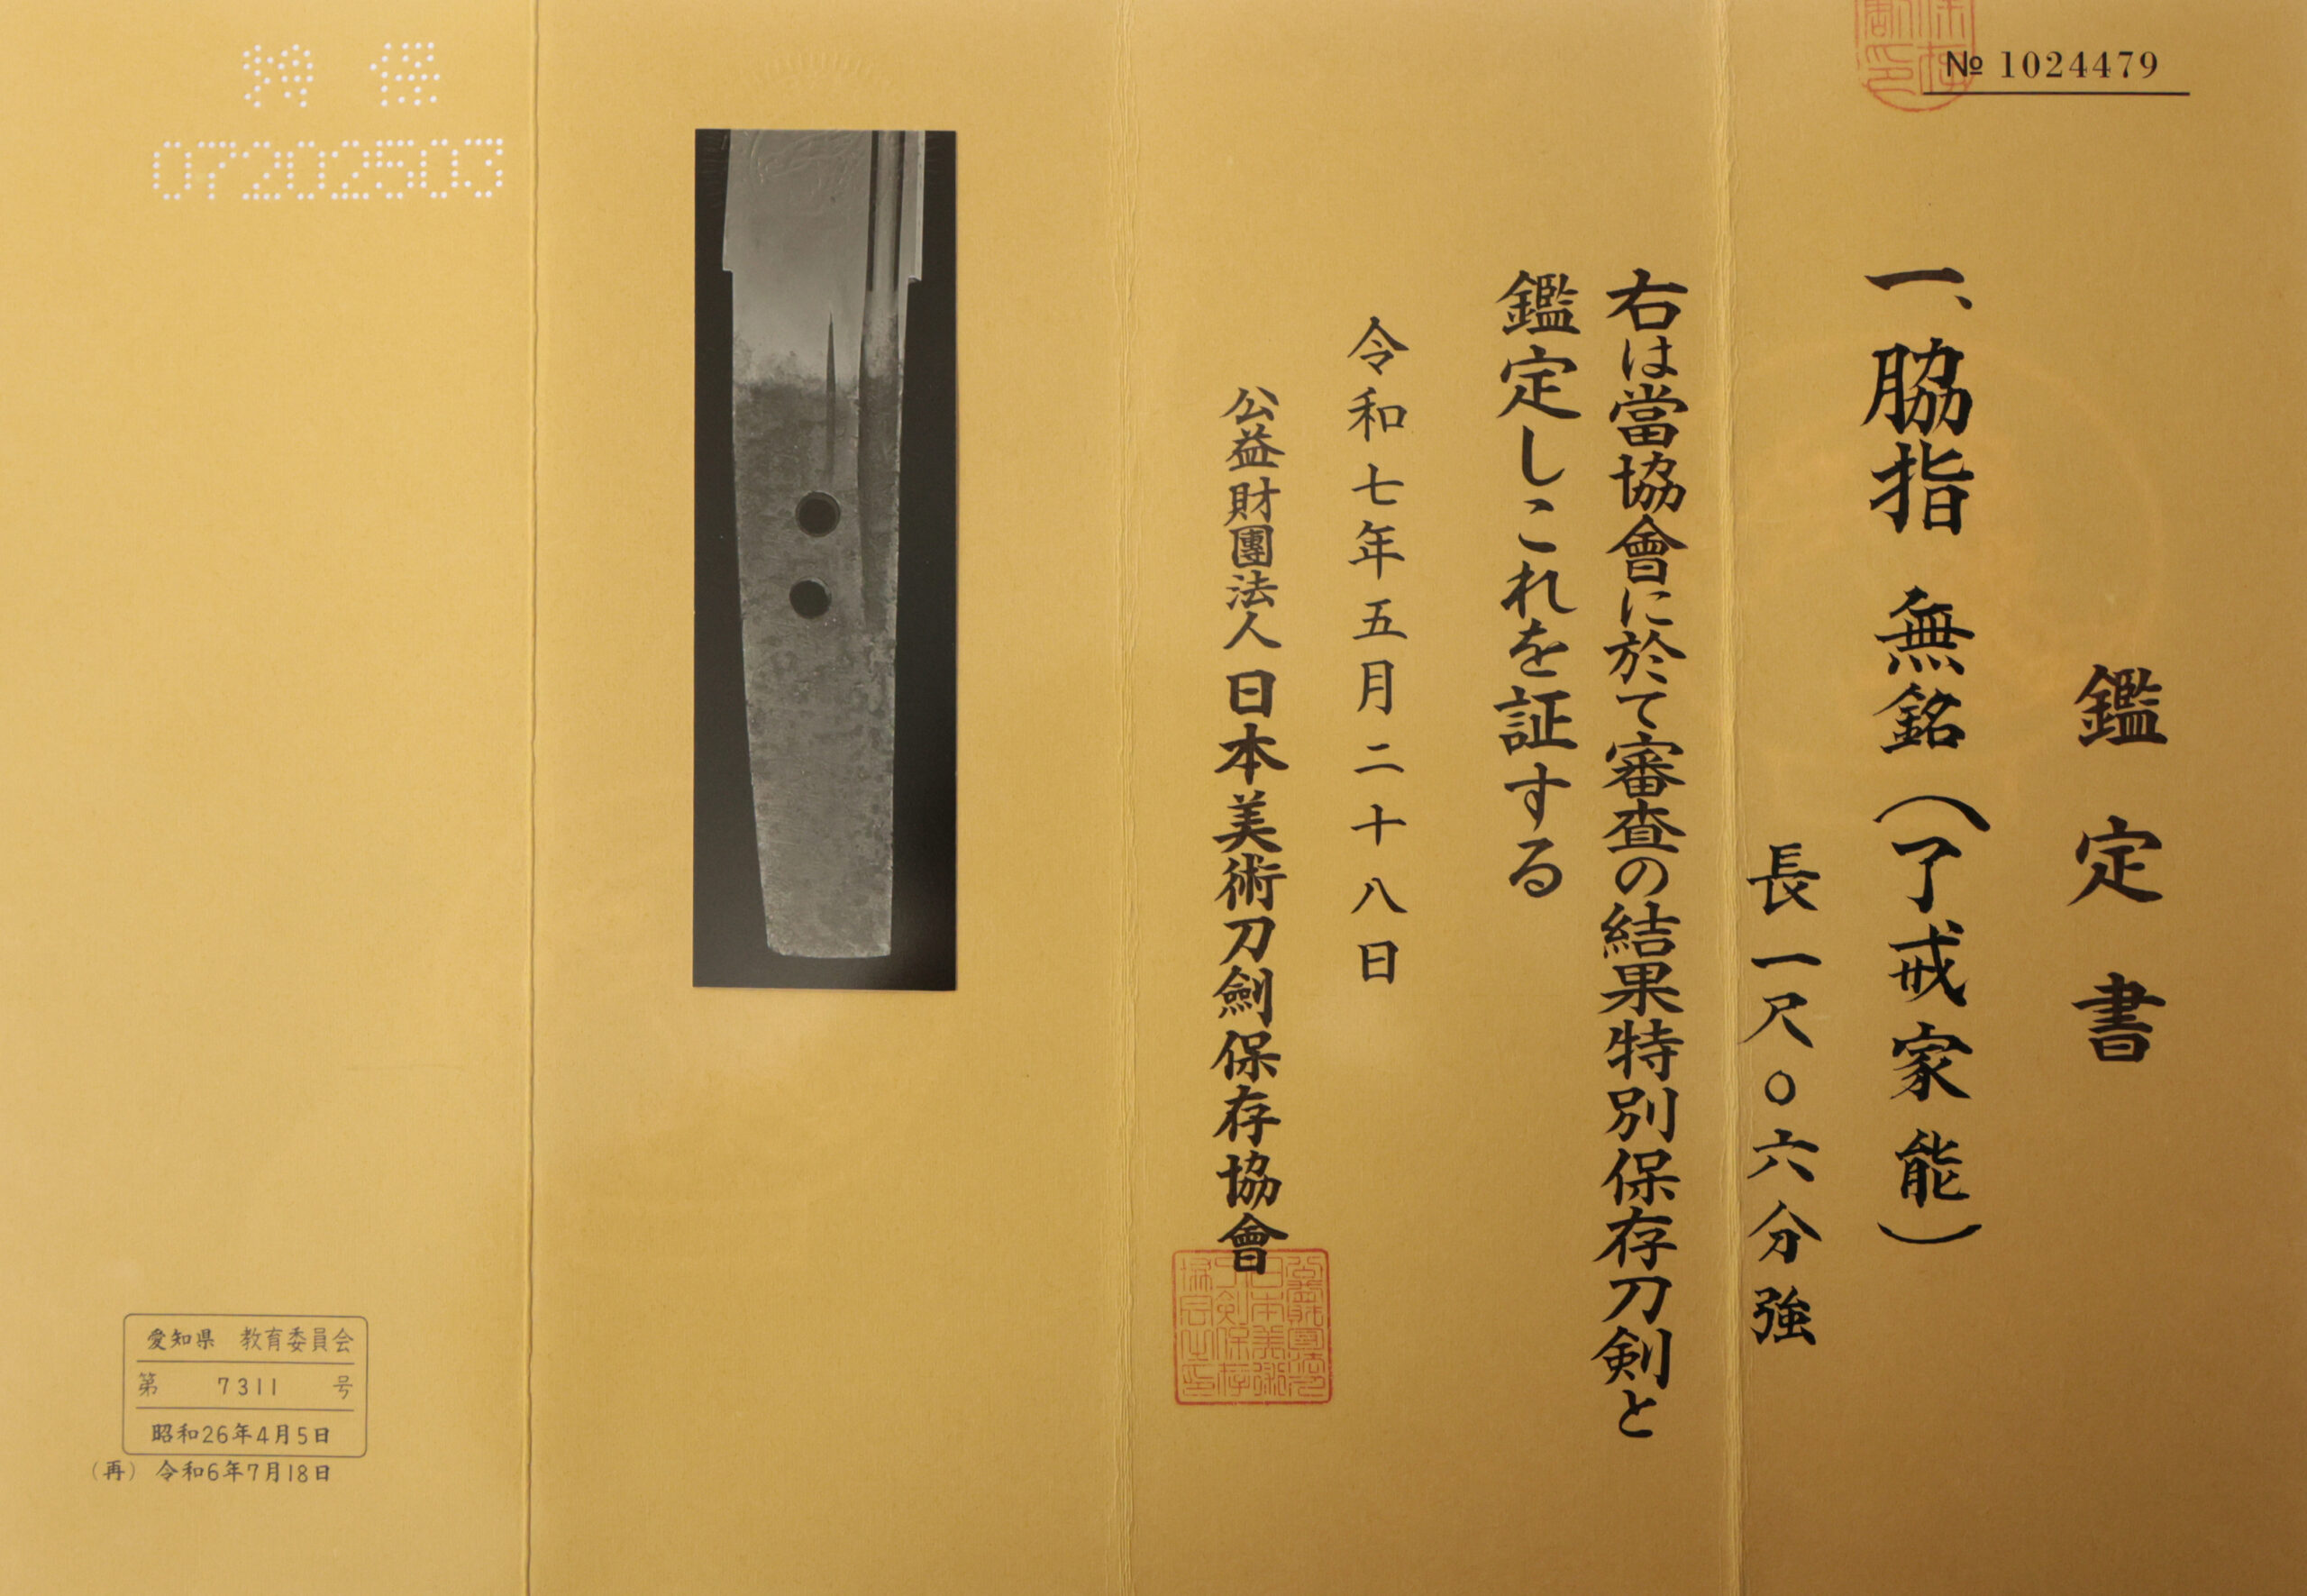 № 1024479
鑑定書
一、脇指 無銘（了戒家能）
長一尺〇六分強
右は當協會に於て審査の結果特別保存刀剣と
鑑定しこれを証する
令和七年五月二十八日
公益財團法人 日本美術刀劍保存協會
特保
07202503
愛知県 教育委員会
第 7311 号
昭和26年4月5日
（再） 令和6年7月18日